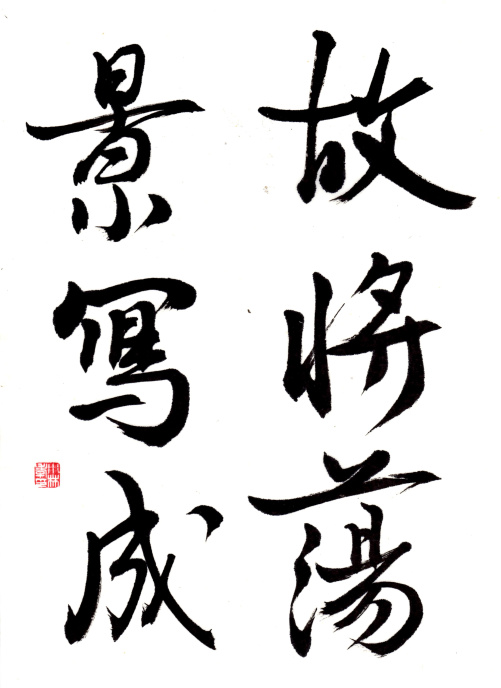 故將蕩
景寫成